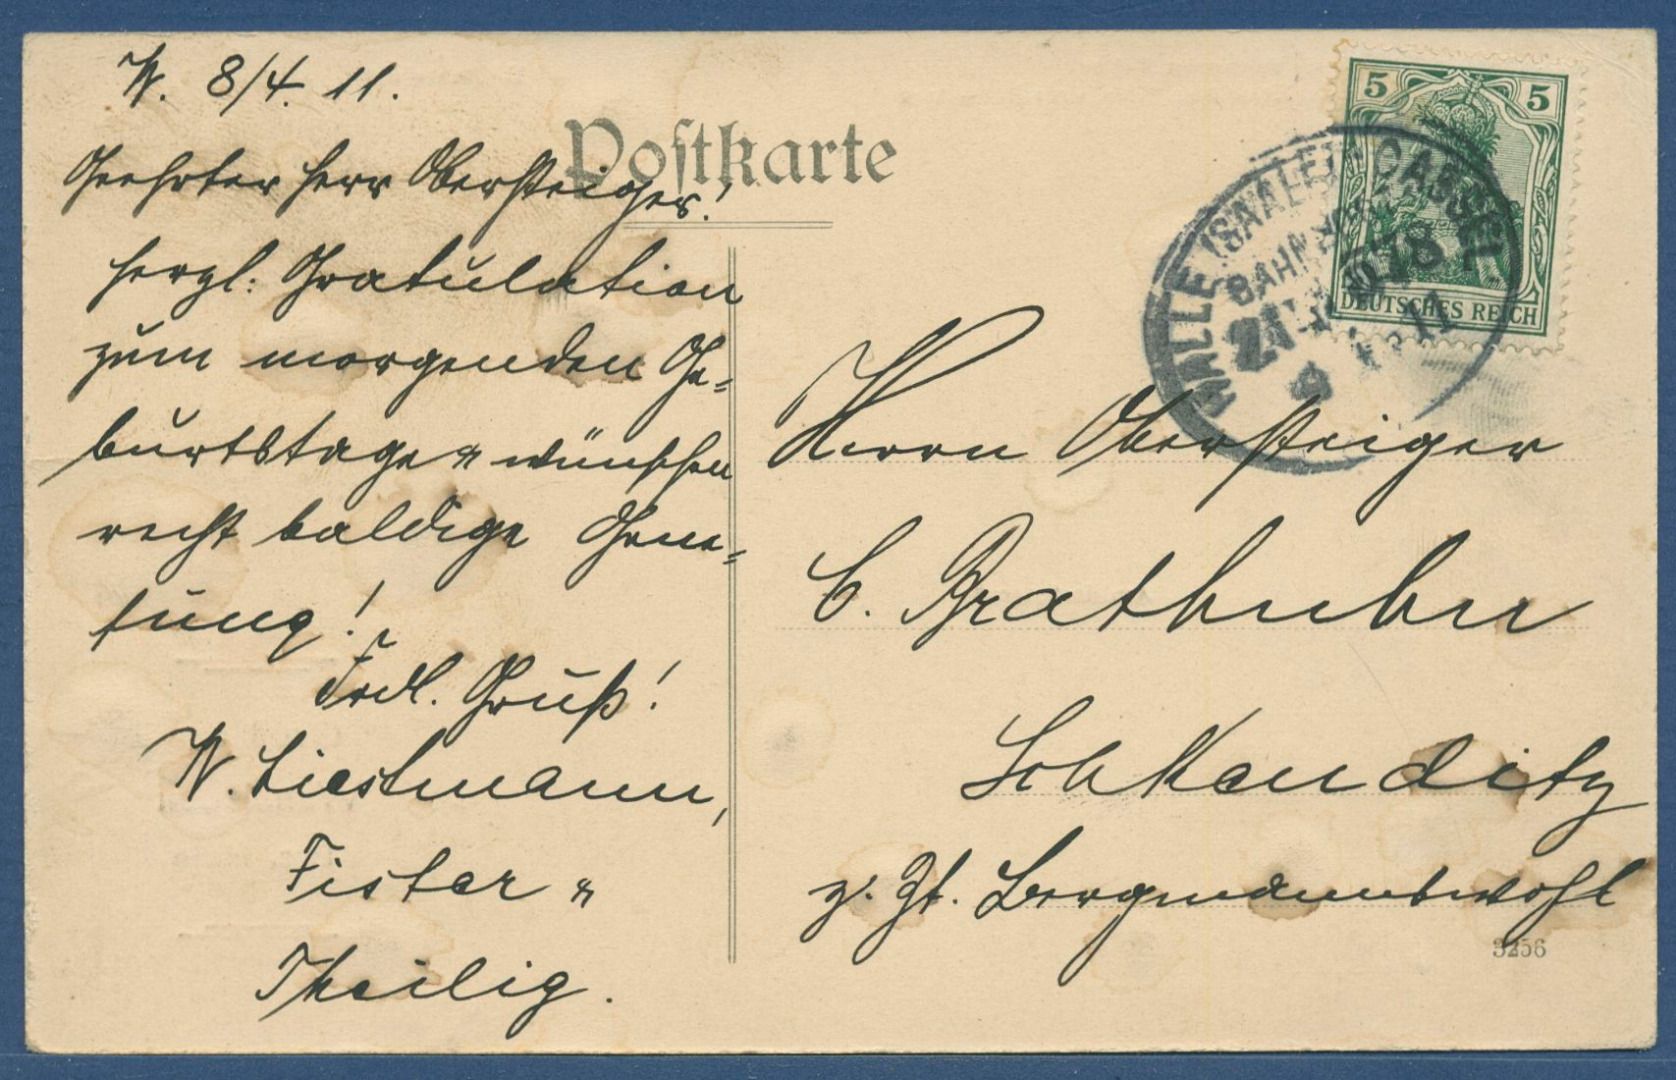 W. 8/4. 11.
Postkarte
Geehrter Herr Obersteiger!
herzl. Gratulation
zum morgenden Ge=
burtstage u wünschen
recht baldige Gene=
sung!
Frdl. Gruß!
W. Liestmann,
Fister u
Theilig.
5 5
DEUTSCHES REICH
HALLE (SAALE) CASSEL
BAHNPOST
ZUG
8 4 11
Herrn Obersteiger
C. Brathuhn
Schkeuditz
z. Zt. Bergmannswohl
3256